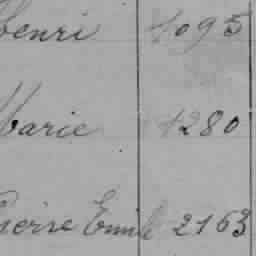 Henri 1095
Marie 1280
Pierre Emile 2163